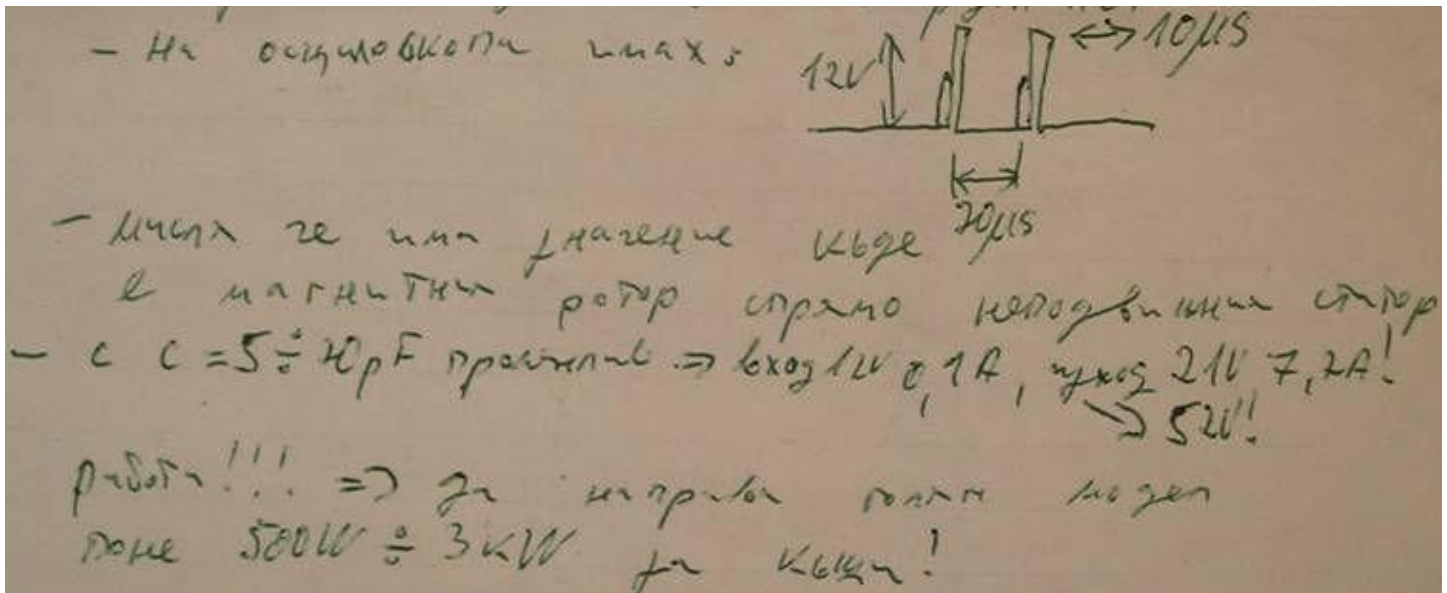 - На осциловкопа имах:
12V
10µs
70µs
- Мисля че има значение къде
е магнитния ротор спрямо неподвижния статор
- с C = 5 ÷ 70pF променлив => вход 12V 0,1A, изход 21V 7,2A!
=> 52V!
работи!!! => да направя голям модел
поне 500W ÷ 3kW за къщи!